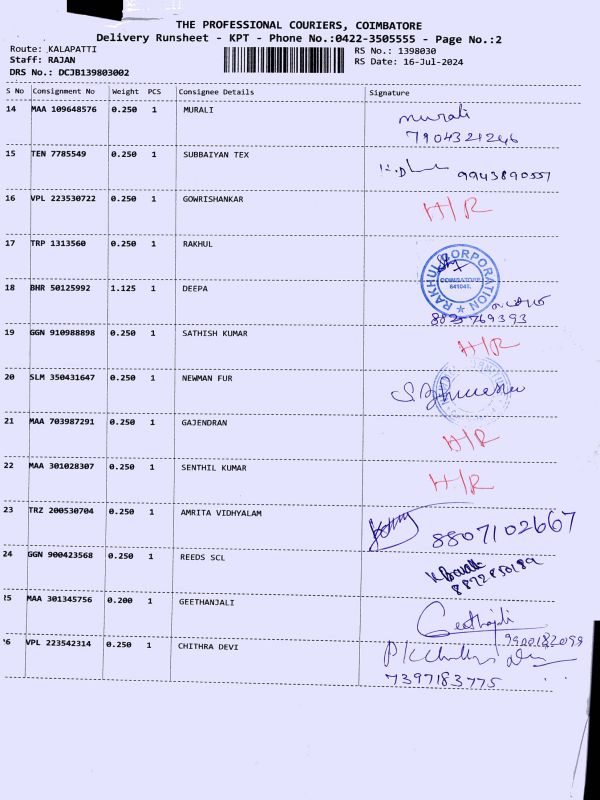 THE PROFESSIONAL COURIERS, COIMBATORE
Delivery Runsheet - KPT - Phone No.:0422-3505555 - Page No.:2
Route: KALAPATTI
RS No.: 1398030
Staff: RAJAN
RS Date: 16-Jul-2024
DRS No.: DCJB139803002
S No Consignment No Weight PCS Consignee Details Signature
14 MAA 109648576 0.250 1 MURALI murali
7904321246
15 TEN 7785549 0.250 1 SUBBAIYAN TEX
9943890557
16 VPL 223530722 0.250 1 GOWRISHANKAR H/R
17 TRP 1313560 0.250 1 RAKHUL
RAKHUL CORPORATION
COIMBATORE
641041.
18 BHR 50125992 1.125 1 DEEPA
8825769393
19 GGN 910988898 0.250 1 SATHISH KUMAR H/R
20 SLM 350431647 0.250 1 NEWMAN FUR
21 MAA 703987291 0.250 1 GAJENDRAN H/R
22 MAA 301028307 0.250 1 SENTHIL KUMAR H/R
23 TRZ 200530704 0.250 1 AMRITA VIDHYALAM 8807102667
24 GGN 900423568 0.250 1 REEDS SCL
8872850189
25 MAA 301345756 0.200 1 GEETHANJALI Geethanjali
9900182099
26 VPL 223542314 0.250 1 CHITHRA DEVI
7397183775